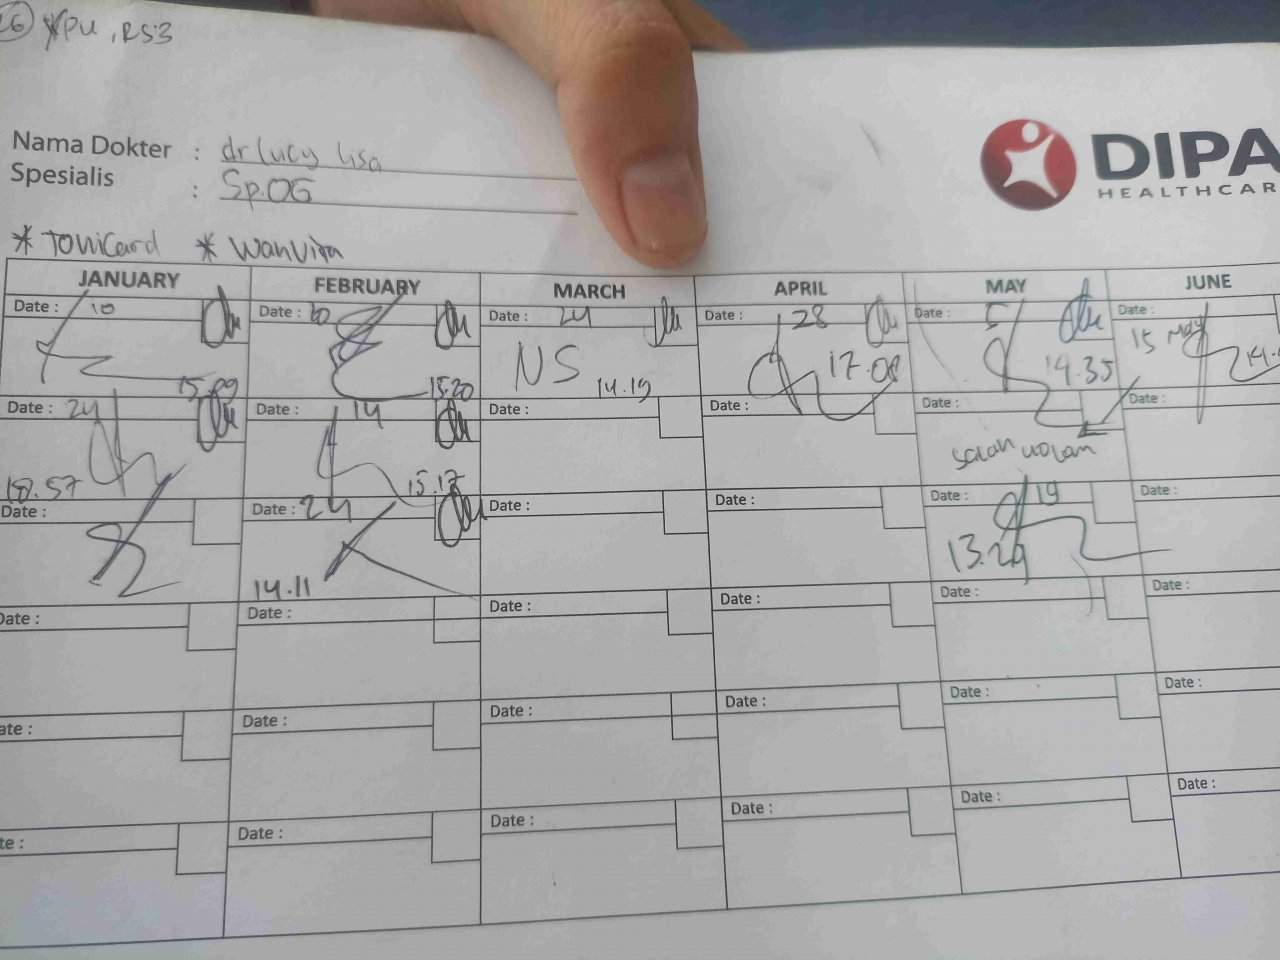 26 *PU, RS3
Nama Dokter : dr Lucy Lisa
Spesialis : Sp.OG
DIPA
HEALTHCAR
* Tonicard * Wanvita
JANUARY FEBRUARY MARCH APRIL MAY JUNE
Date : 10 Date : 10 Date : 24 Date : 28 Date : 5 Date :
15 May
NS 17.08 14.35
15.09 15.20 14.19
Date : 24 Date : 14 Date : Date : Date : Date :
salah kolom
18.57 15.17
Date : Date : 24 Date : Date : Date : 19 Date :
14.11 13.29
Date : Date : Date : Date : Date : Date :
ate : Date : Date : Date : Date : Date :
te : Date : Date : Date : Date : Date :